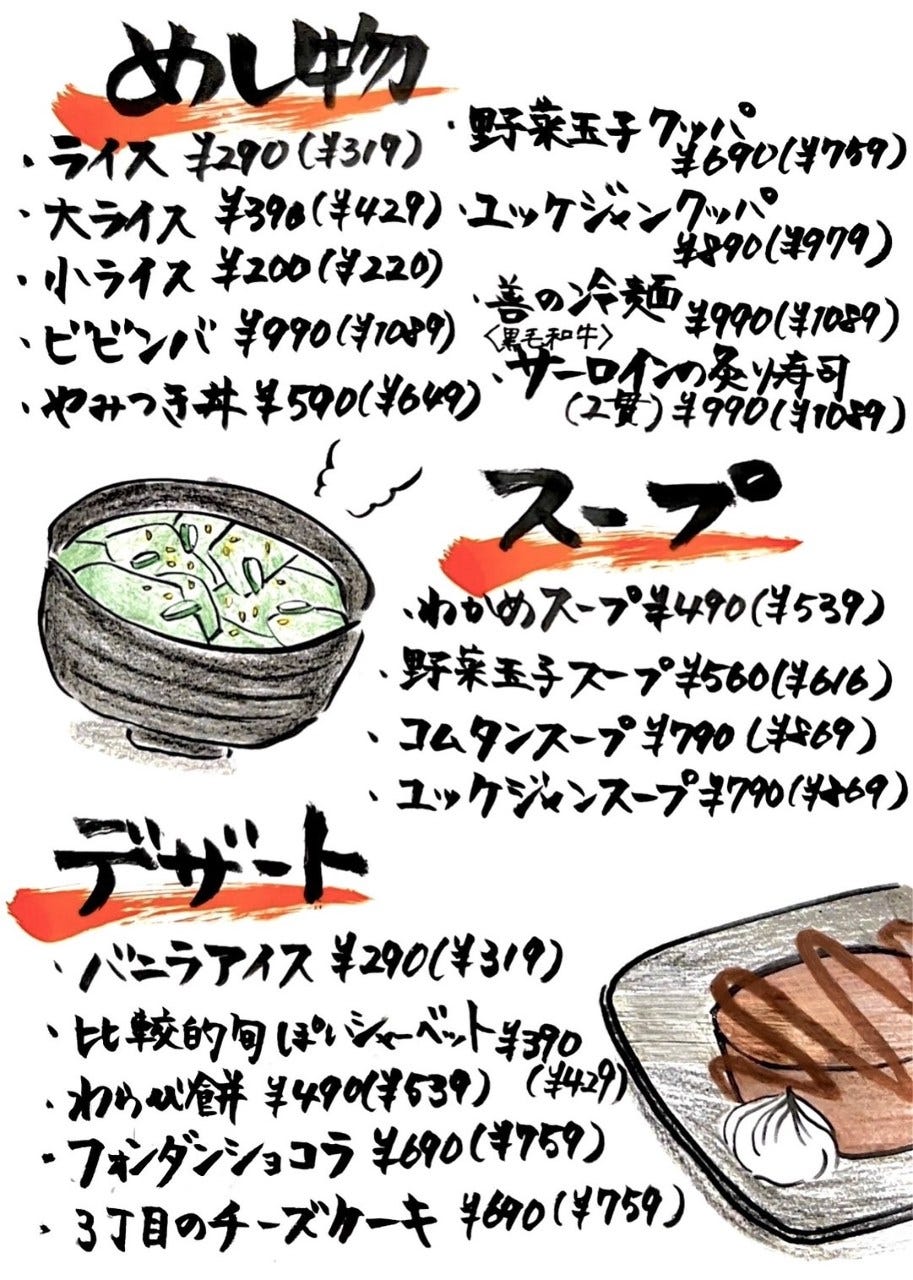 めし物
・ライス ¥290(¥319)
・大ライス ¥390(¥429)
・小ライス ¥200(¥220)
・ビビンバ ¥990(¥1089)
・やみつき丼 ¥590(¥649)
・野菜玉子クッパ
¥690(¥759)
・ユッケジャンクッパ
¥890(¥979)
・善の冷麺 ¥990(¥1089)
〈黒毛和牛〉
・サーロインの炙り寿司
(2貫) ¥990(¥1089)
スープ
・わかめスープ ¥490(¥539)
・野菜玉子スープ ¥560(¥616)
・コムタンスープ ¥790(¥869)
・ユッケジャンスープ ¥790(¥869)
デザート
・バニラアイス ¥290(¥319)
・比較的旬ぽいシャーベット ¥390
(¥429)
・わらび餅 ¥490(¥539)
・フォンダンショコラ ¥690(¥759)
・3丁目のチーズケーキ ¥690(¥759)